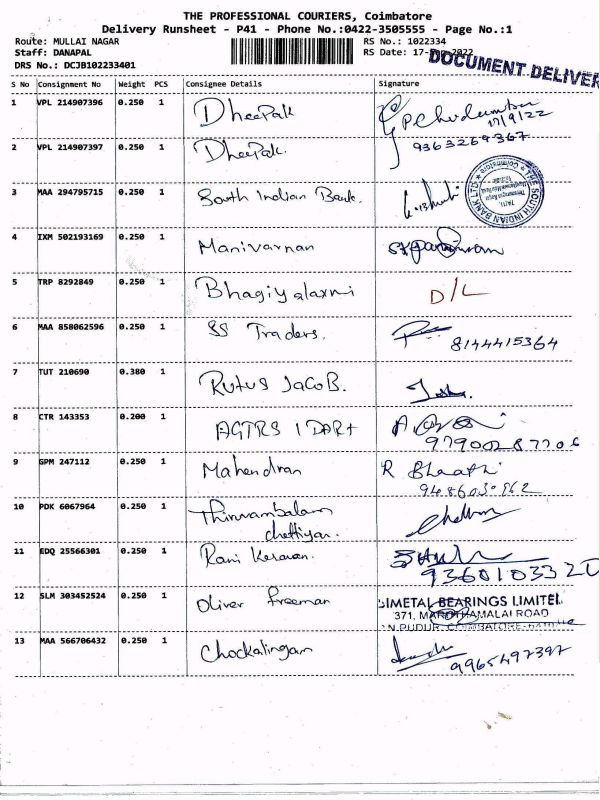 THE PROFESSIONAL COURIERS, Coimbatore
Delivery Runsheet - P41 - Phone No.:0422-3505555 - Page No.:1
Route: MULLAI NAGAR
RS No.: 1022334
Staff: DANAPAL
RS Date: 17-Sep-2022
DRS No.: DCJB102233401
DOCUMENT DELIVER
S No Consignment No Weight PCS Consignee Details Signature
1 VPL 214907396 0.250 1 Dheepak
17/9/22
2 VPL 214907397 0.250 1 Dheepak. 9363269367
3 MAA 294795715 0.250 1 South Indian Bank.
THE SOUTH INDIAN BANK LTD
4 IXM 502193169 0.250 1 Manivarnan
5 TRP 8292849 0.250 1 Bhagiyalaxmi D/L
6 MAA 858062596 0.250 1 SS Traders. 8144415364
7 TUT 210690 0.380 1 Rufus Jacob.
8 CTR 143353 0.200 1
9 GPM 247112 0.250 1 Mahendran R
10 PDK 6067964 0.250 1 Thiruvambalam
chettiyar.
11 EDQ 25566301 0.250 1 Rani
12 SLM 303452524 0.250 1 Oliver freeman
BIMETAL BEARINGS LIMITED
371, MARUTHAMALAI ROAD
13 MAA 566706432 0.250 1 Chockalingam 9965497397